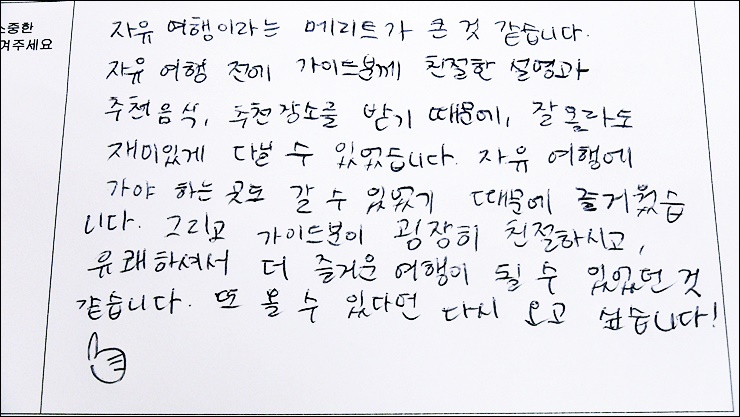 소중한
겨주세요
자유 여행이라는 메리트가 큰 것 같습니다.
자유 여행 전에 가이드분께 친절한 설명과
추천음식, 추천장소를 받기 때문에, 잘 몰라도
재미있게 다닐 수 있었습니다. 자유 여행에
가야 하는 곳도 갈 수 있었기 때문에 즐거웠습
니다. 그리고 가이드분이 굉장히 친절하시고,
유쾌하셔서 더 즐거운 여행이 될 수 있었던 것
같습니다. 또 올 수 있다면 다시 오고 싶습니다!